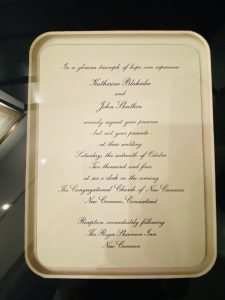 In a glorious triumph of hope over experience
Katherine Blakeslee
and
John Shutkin
warmly request your presence
- but not your presents -
at their wedding
Saturday, the sixteenth of October
Two thousand and four
at six o'clock in the evening
The Congregational Church of New Canaan
New Canaan, Connecticut
Reception immediately following
The Roger Sherman Inn
New Canaan